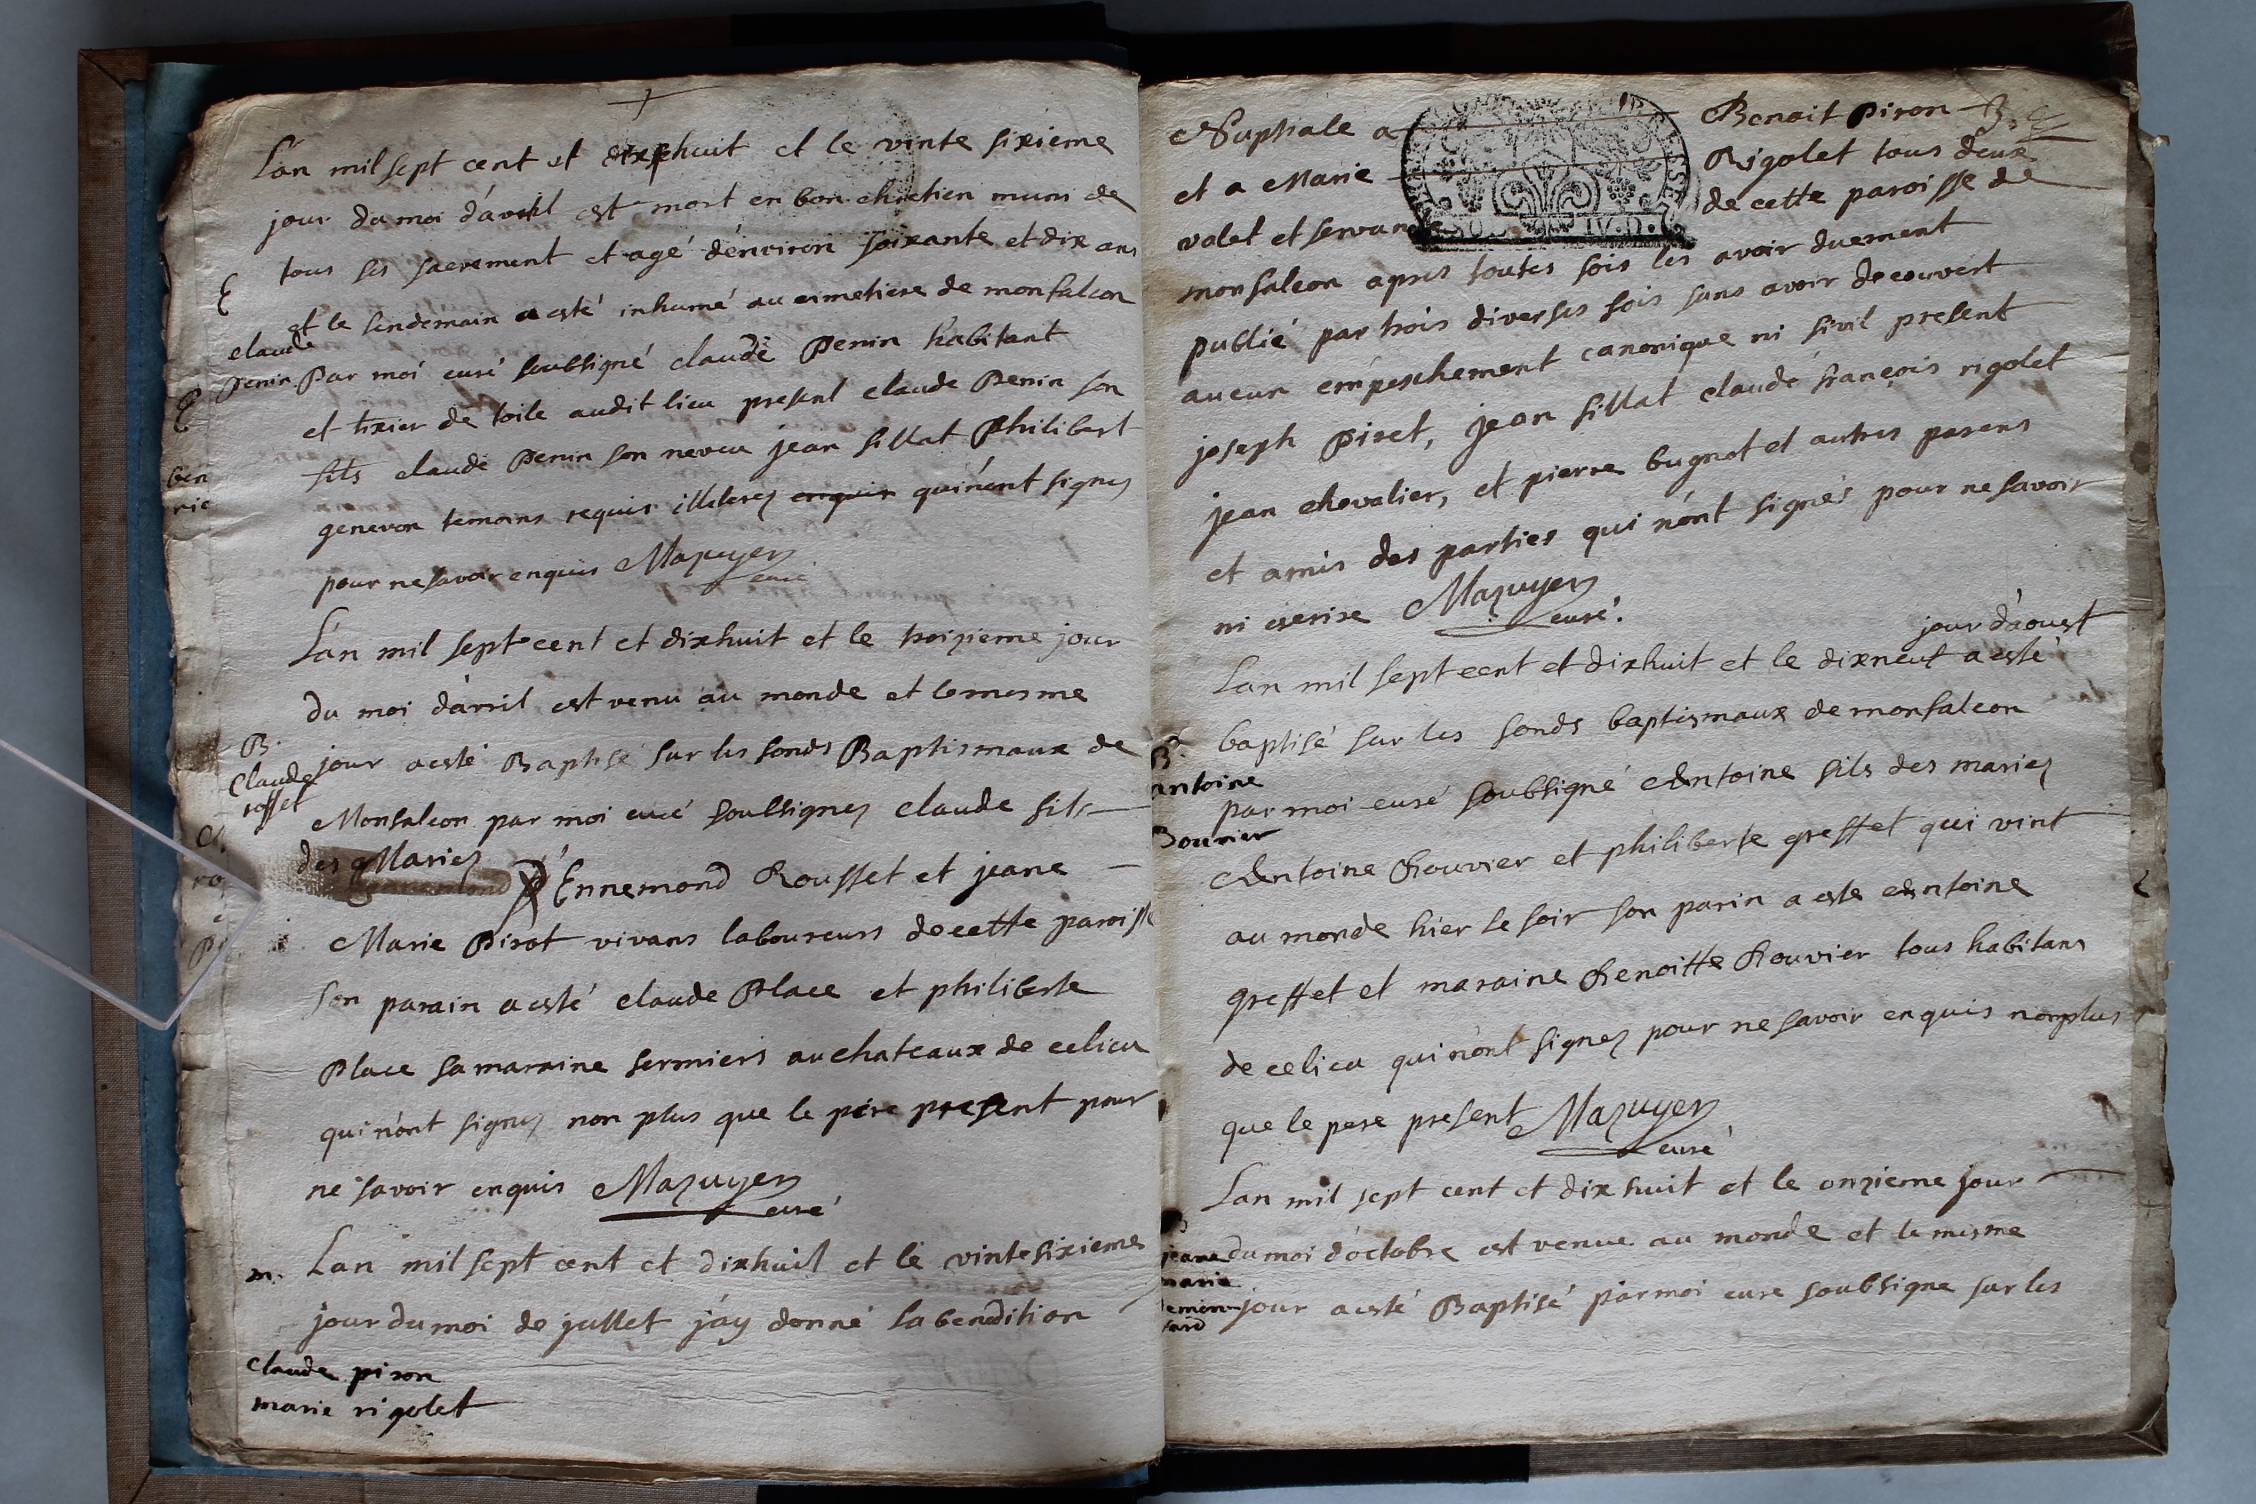 L'an mil sept cent et dixhuit et le vinte sixieme
jour du moi d'avril est mort en bon chretien muni de
tous ses sacrement et agé d'environ soixante et dix ans
E
et le lendemain a esté inhumé au cimetiere de monfalcon
claude
penin
Par moi curé soubsigné claude Penin habitant
et tixier de toile audit lieu present claude Penin son
fils claude Penin son neveu jean fillat Philibert
genevon temoins requis illeterez enquis qui n'ont signez
pour ne savoir enquis Mazuyer
curé
L'an mil sept cent et dixhuit et le troizieme jour
du moi d'avril est venu au monde et le mesme
B.
Claude
rosset
jour a esté Baptisé sur les fonds Baptismaux de
Monfalcon par moi curé soubsignez claude fils
des Mariez
Ennemond Rousset et jeane
Marie Pirot vivans laboureurs de cette paroisse
son parain a esté claude Place et philiberte
Place sa maraine fermiers au chateaux de ce lieu
qui n'ont signez non plus que le pére present pour
ne savoir enquis Mazuyer
curé
m.
Lan mil sept cent et dixhuit et le vinte sixieme
jour du moi de jullet j'ay donné la bendition
claude piron
marie rigolet
Nuptiale a
Benoit Piron
et a Marie
Rigolet tous deux
valet et servante
de cette paroisse de
monfalcon apres toutes fois les avoir duement
publié par trois diverses fois sans avoir decouvert
aucun empeschement canonique ni sivil present
joseph Piret, jean fillat claude françois rigolet
jean chevalier, et pierre bugnot et autres parens
et amis des parties qui n'ont signés pour ne savoir
ni escrire Mazuyer
curé.
jour d'aoust
Lan mil sept cent et dixhuit et le dixneuf a esté
B.
antoine
Bouvier
baptisé sur les fonds baptismaux de monfalcon
par moi curé soubsigné Antoine fils des mariez
Antoine Bouvier et philiberte greffet qui vint
au monde hier le soir son parin a esté Antoine
greffet et maraine Benoitte Bouvier tous habitans
de ce lieu qui n'ont signez pour ne savoir enquis non plus
que le pere present Mazuyer
curé
Lan mil sept cent et dix huit et le onzieme jour
jeane
marie
du moi d'octobre est venue au monde et le mesme
jour a esté Baptisé par moi curé soubsigné sur les